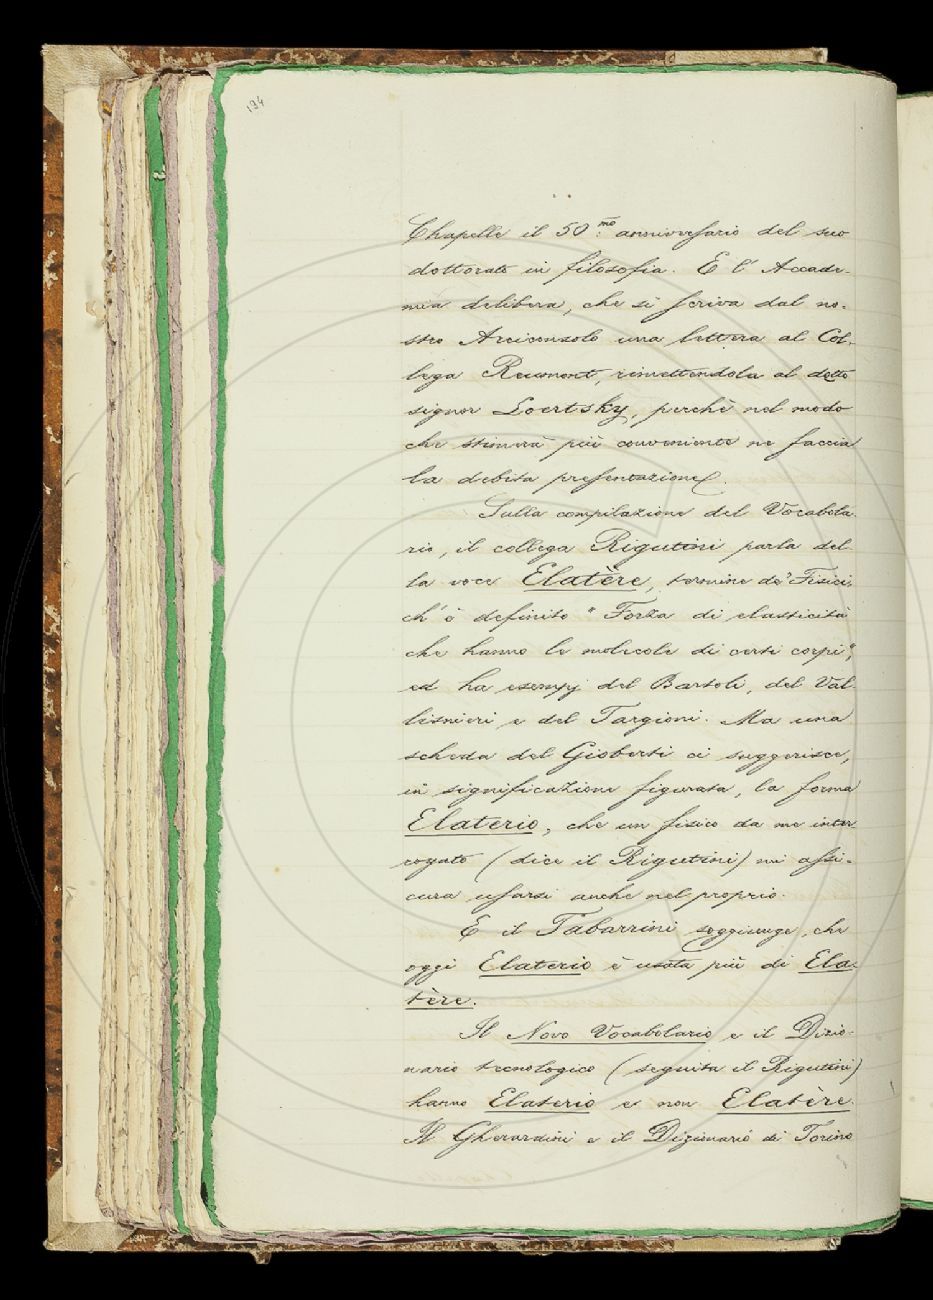 194
Chapelle il 50.mo anniversario del suo
dottorato in filosofia. E l'Accade-
mia delibera, che si scriva dal no-
stro Arciconsolo una lettera al Col-
lega Reumont, rimettendola al detto
signor Loertsky, perchè nel modo
che stimerà più conveniente ne faccia
la debita presentazione.
Sulla compilazione del Vocabola-
rio, il collega Rigutini parla del-
la voce Elatère, termine de' Fisici,
ch'è definito "Forza di elasticità
che hanno le molecole di certi corpi",
ed ha esempj del Bartoli, del Val-
lisnieri e del Targioni. Ma una
scheda del Gioberti ci suggerisce,
in significazione figurata, la forma
Elaterio, che un fisico da me inter
rogato (dice il Rigutini) mi assi-
cura usarsi anche nel proprio.
E il Tabarrini soggiunge, che
oggi Elaterio è usata più di Ela-
tère.
Il Novo Vocabolario e il Dizio-
nario tecnologico (seguita il Rigutini)
hanno Elaterio e non Elatère.
Il Gherardini e il Dizionario di Torino